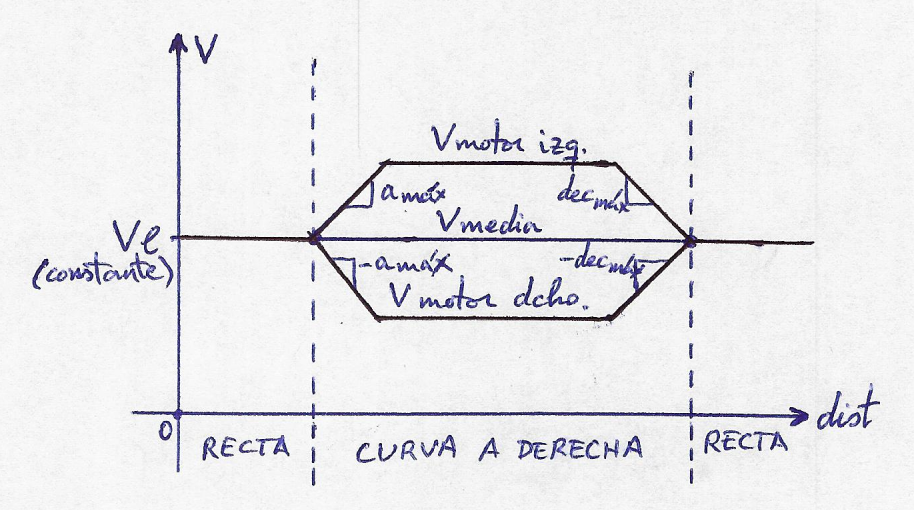 V
Vmotor izq.
a máx
dec máx
Vmedia
Ve
(constante)
-a máx
-dec máx
V motor dcho.
0
dist
RECTA
CURVA A DERECHA
RECTA